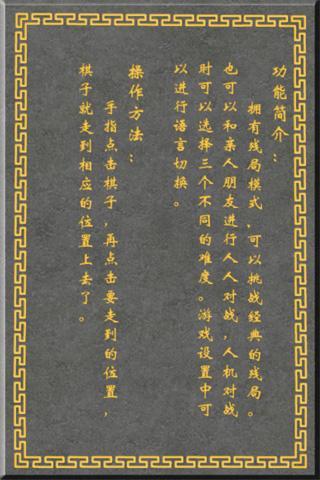 功能简介：
拥有残局模式，可以挑战经典的残局。
也可以和亲人朋友进行人人对战，人机对战
时可以选择三个不同的难度。游戏设置中可
以进行语言切换。
操作方法：
手指点击棋子，再点击要走到的位置，
棋子就走到相应的位置上去了。